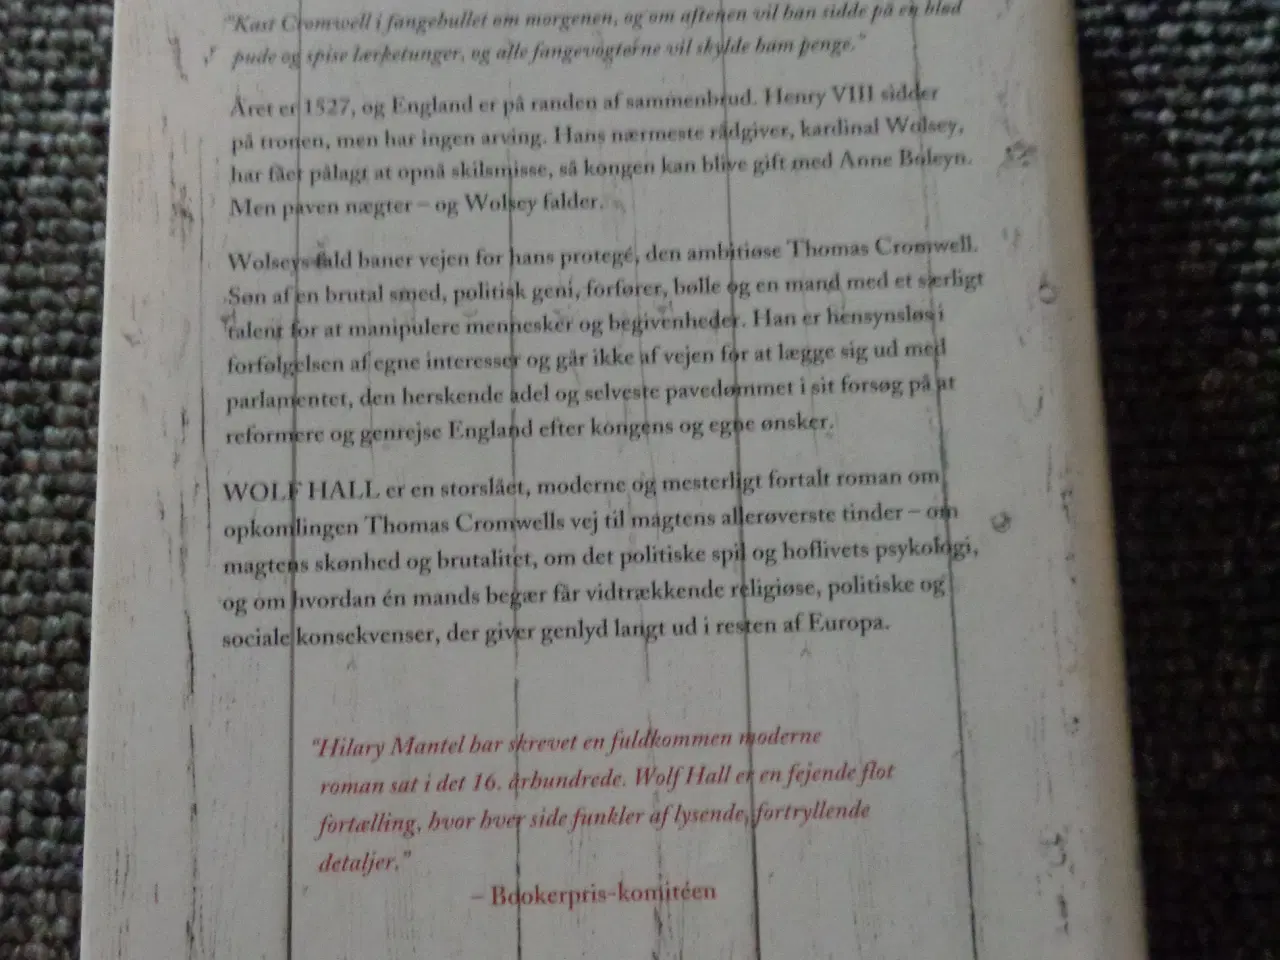 "Kast Cromwell i fangehullet om morgenen, og om aftenen vil han sidde på en blød
pude og spise lærketunger, og alle fangevogterne vil skylde ham penge."
Året er 1527, og England er på randen af sammenbrud. Henry VIII sidder
på tronen, men har ingen arving. Hans nærmeste rådgiver, kardinal Wolsey,
har fået pålagt at opnå skilsmisse, så kongen kan blive gift med Anne Boleyn.
Men paven nægter – og Wolsey falder.
Wolseys fald baner vejen for hans protegé, den ambitiøse Thomas Cromwell.
Søn af en brutal smed, politisk geni, forfører, bølle og en mand med et særligt
talent for at manipulere mennesker og begivenheder. Han er hensynsløs i
forfølgelsen af egne interesser og går ikke af vejen for at lægge sig ud med
parlamentet, den herskende adel og selveste pavedømmet i sit forsøg på at
reformere og genrejse England efter kongens og egne ønsker.
WOLF HALL er en storslået, moderne og mesterligt fortalt roman om
opkomlingen Thomas Cromwells vej til magtens allerøverste tinder – om
magtens skønhed og brutalitet, om det politiske spil og hoflivets psykologi,
og om hvordan én mands begær får vidtrækkende religiøse, politiske og
sociale konsekvenser, der giver genlyd langt ud i resten af Europa.
"Hilary Mantel har skrevet en fuldkommen moderne
roman sat i det 16. århundrede. Wolf Hall er en fejende flot
fortælling, hvor hver side funkler af lysende, fortryllende
detaljer."
– Bookerpris-komitéen